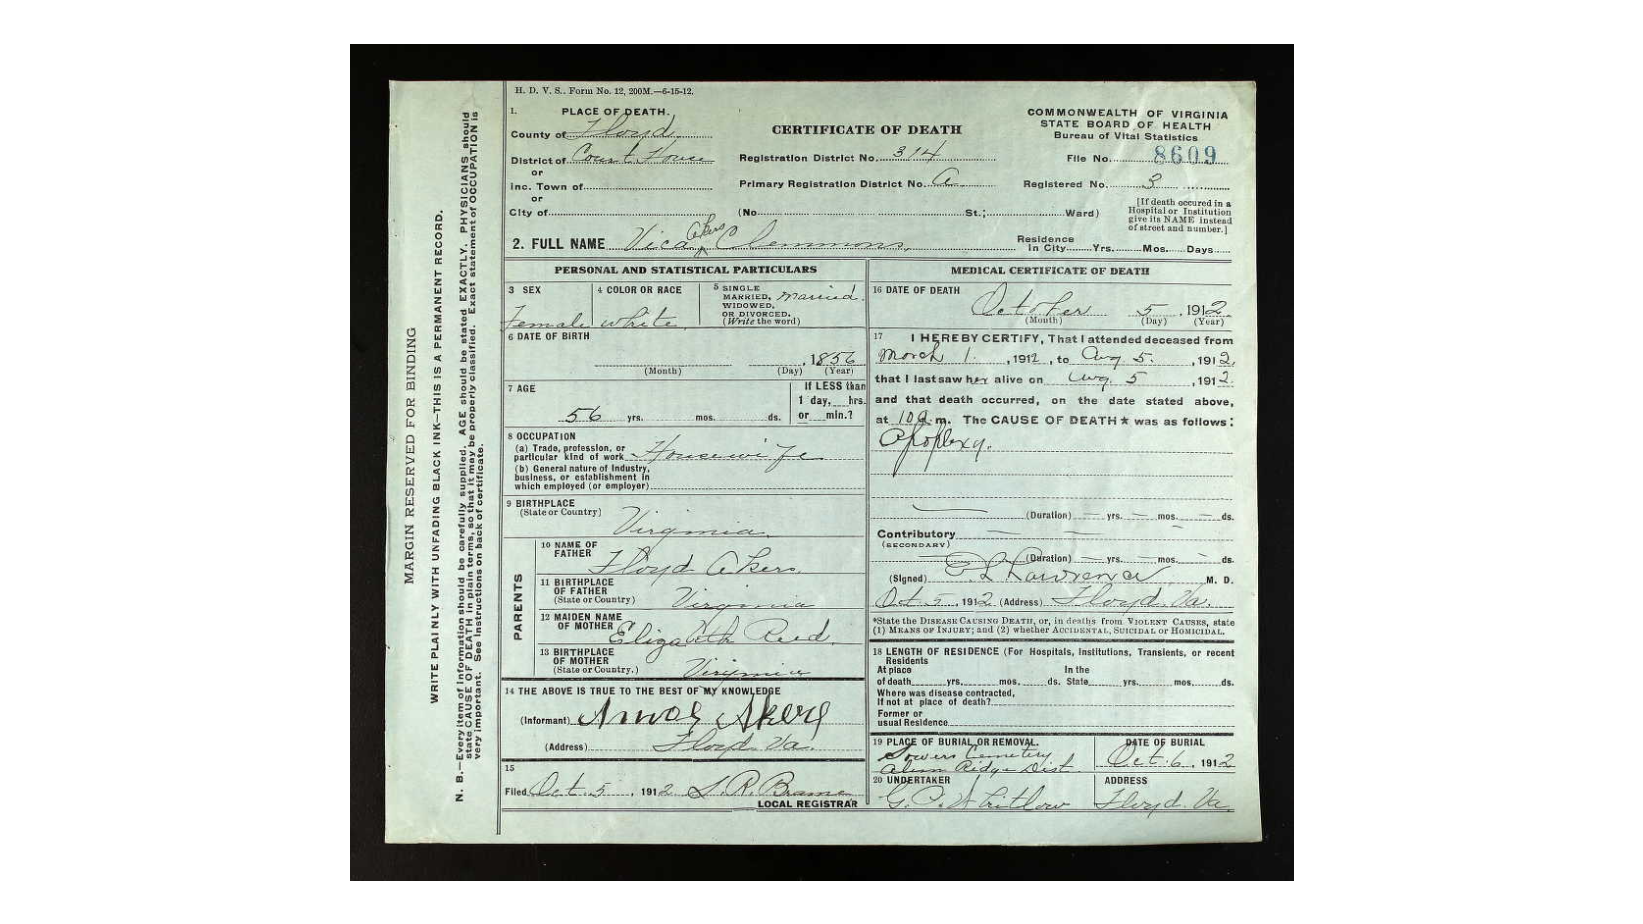 H. D. V. S.. Form No. 12, 200M.—6-15-12.
1. PLACE OF DEATH.
County of Floyd
District of Court House
or
Inc. Town of
or
City of
CERTIFICATE OF DEATH
Registration District No. 314
Primary Registration District No. A
(No. St.; Ward)
COMMONWEALTH OF VIRGINIA
STATE BOARD OF HEALTH
Bureau of Vital Statistics
File No. 8609
Registered No. 3
[If death occured in a
Hospital or Institution
give its NAME instead
of street and number.]
2. FULL NAME Vica Akers Clemmons
Residence
In City Yrs. Mos. Days
PERSONAL AND STATISTICAL PARTICULARS
3 SEX
Female
4 COLOR OR RACE
white
5 SINGLE
MARRIED, married.
WIDOWED,
OR DIVORCED.
(Write the word)
6 DATE OF BIRTH
, 1856
(Month) (Day) (Year)
7 AGE
56 yrs. mos. ds.
If LESS than
1 day, hrs.
or min.?
8 OCCUPATION
(a) Trade, profession, or
particular kind of work Housewife
(b) General nature of Industry,
business, or establishment in
which employed (or employer)
9 BIRTHPLACE
(State or Country)
Virginia.
PARENTS
10 NAME OF
FATHER Floyd Akers
11 BIRTHPLACE
OF FATHER
(State or Country) Virginia
12 MAIDEN NAME
OF MOTHER Elizabeth Reed
13 BIRTHPLACE
OF MOTHER
(State or Country.) Virginia
14 THE ABOVE IS TRUE TO THE BEST OF MY KNOWLEDGE
(Informant) Amos Akers
(Address) Floyd Va.
15
Filed Oct. 5, 1912 S. R. Brame
LOCAL REGISTRAR
MEDICAL CERTIFICATE OF DEATH
16 DATE OF DEATH
October 5, 1912
(Month) (Day) (Year)
17 I HEREBY CERTIFY, That I attended deceased from
March 1. , 1912 , to Aug 5. , 1912,
that I last saw her alive on Aug. 5 , 1912.
and that death occurred, on the date stated above,
at 10 a. m. The CAUSE OF DEATH★ was as follows:
Apoplexy.
(Duration) yrs. mos. ds.
Contributory
(SECONDARY)
(Duration) yrs. mos. ds.
(Signed) Lawrence M. D.
Oct 5, 1912 (Address) Floyd. Va.
*State the DISEASE CAUSING DEATH, or, in deaths from VIOLENT CAUSES, state
(1) MEANS OF INJURY; and (2) whether ACCIDENTAL, SUICIDAL or HOMICIDAL.
18 LENGTH OF RESIDENCE (For Hospitals, Institutions, Transients, or recent
Residents
At place In the
of death yrs. mos. ds. State yrs. mos. ds.
Where was disease contracted,
If not at place of death?
Former or
usual Residence
19 PLACE OF BURIAL OR REMOVAL.
Sowers Cemetery
Alum Ridge Dist
DATE OF BURIAL
Oct. 6, 1912
20 UNDERTAKER
G. C. Whitlow
ADDRESS
Floyd. Va.
MARGIN RESERVED FOR BINDING
WRITE PLAINLY WITH UNFADING BLACK INK—THIS IS A PERMANENT RECORD.
N. B.—Every item of Information should be carefully supplied. AGE should be stated EXACTLY. PHYSICIANS should
state CAUSE OF DEATH in plain terms, so that it may be properly classified. Exact statement of OCCUPATION is
very important. See instructions on back of certificate.